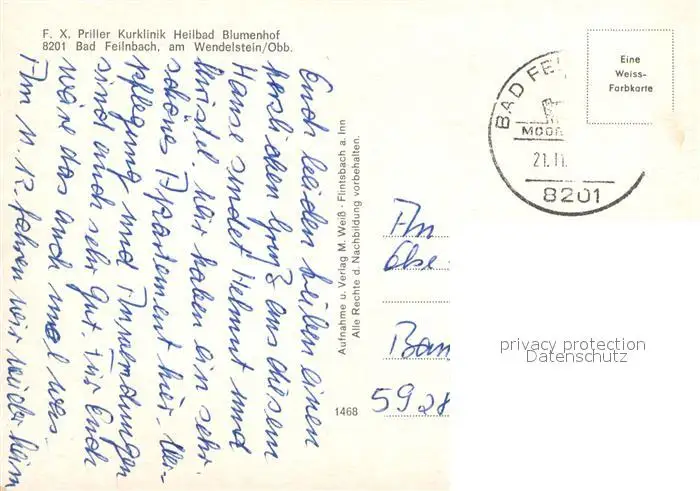 F. X. Priller Kurklinik Heilbad Blumenhof
8201 Bad Feilnbach, am Wendelstein/Obb.
Euch beiden lieben einen
herzlichen Gruß aus diesem
Hause sendet Helmut und
Christel. Wir haben ein sehr
schönes Appartement hier. Ver-
pflegung und Anwendungen
sind auch sehr gut. Für Euch
wäre das auch mal was.
Am 11. 12. fahren wir wieder heim
Aufnahme u. Verlag M. Weiß · Flintsbach a. Inn
Alle Rechte d. Nachbildung vorbehalten.
1468
Eine
Weiss-
Farbkarte
BAD FE
MOOR
21.11.
8201
An
Ban
5928
privacy protection
Datenschutz